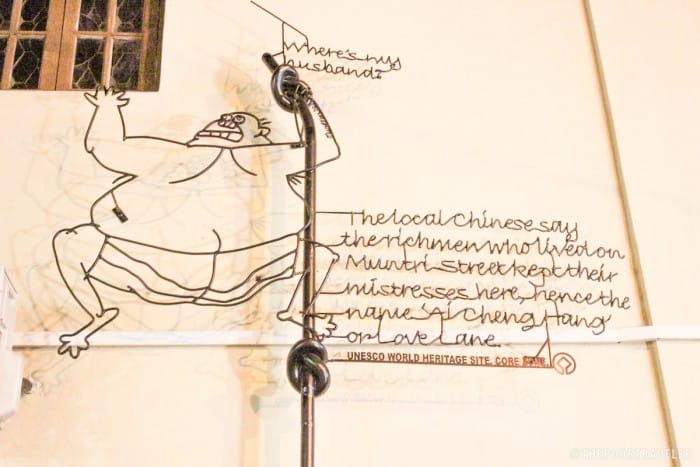 Where's my
husband?
The local Chinese say
the rich men who lived on
Muntri Street kept their
mistresses here, hence the
name 'Ai Cheng Hang'
or Love Lane.
UNESCO WORLD HERITAGE SITE, CORE ZONE
© THEPOORTRAVELER